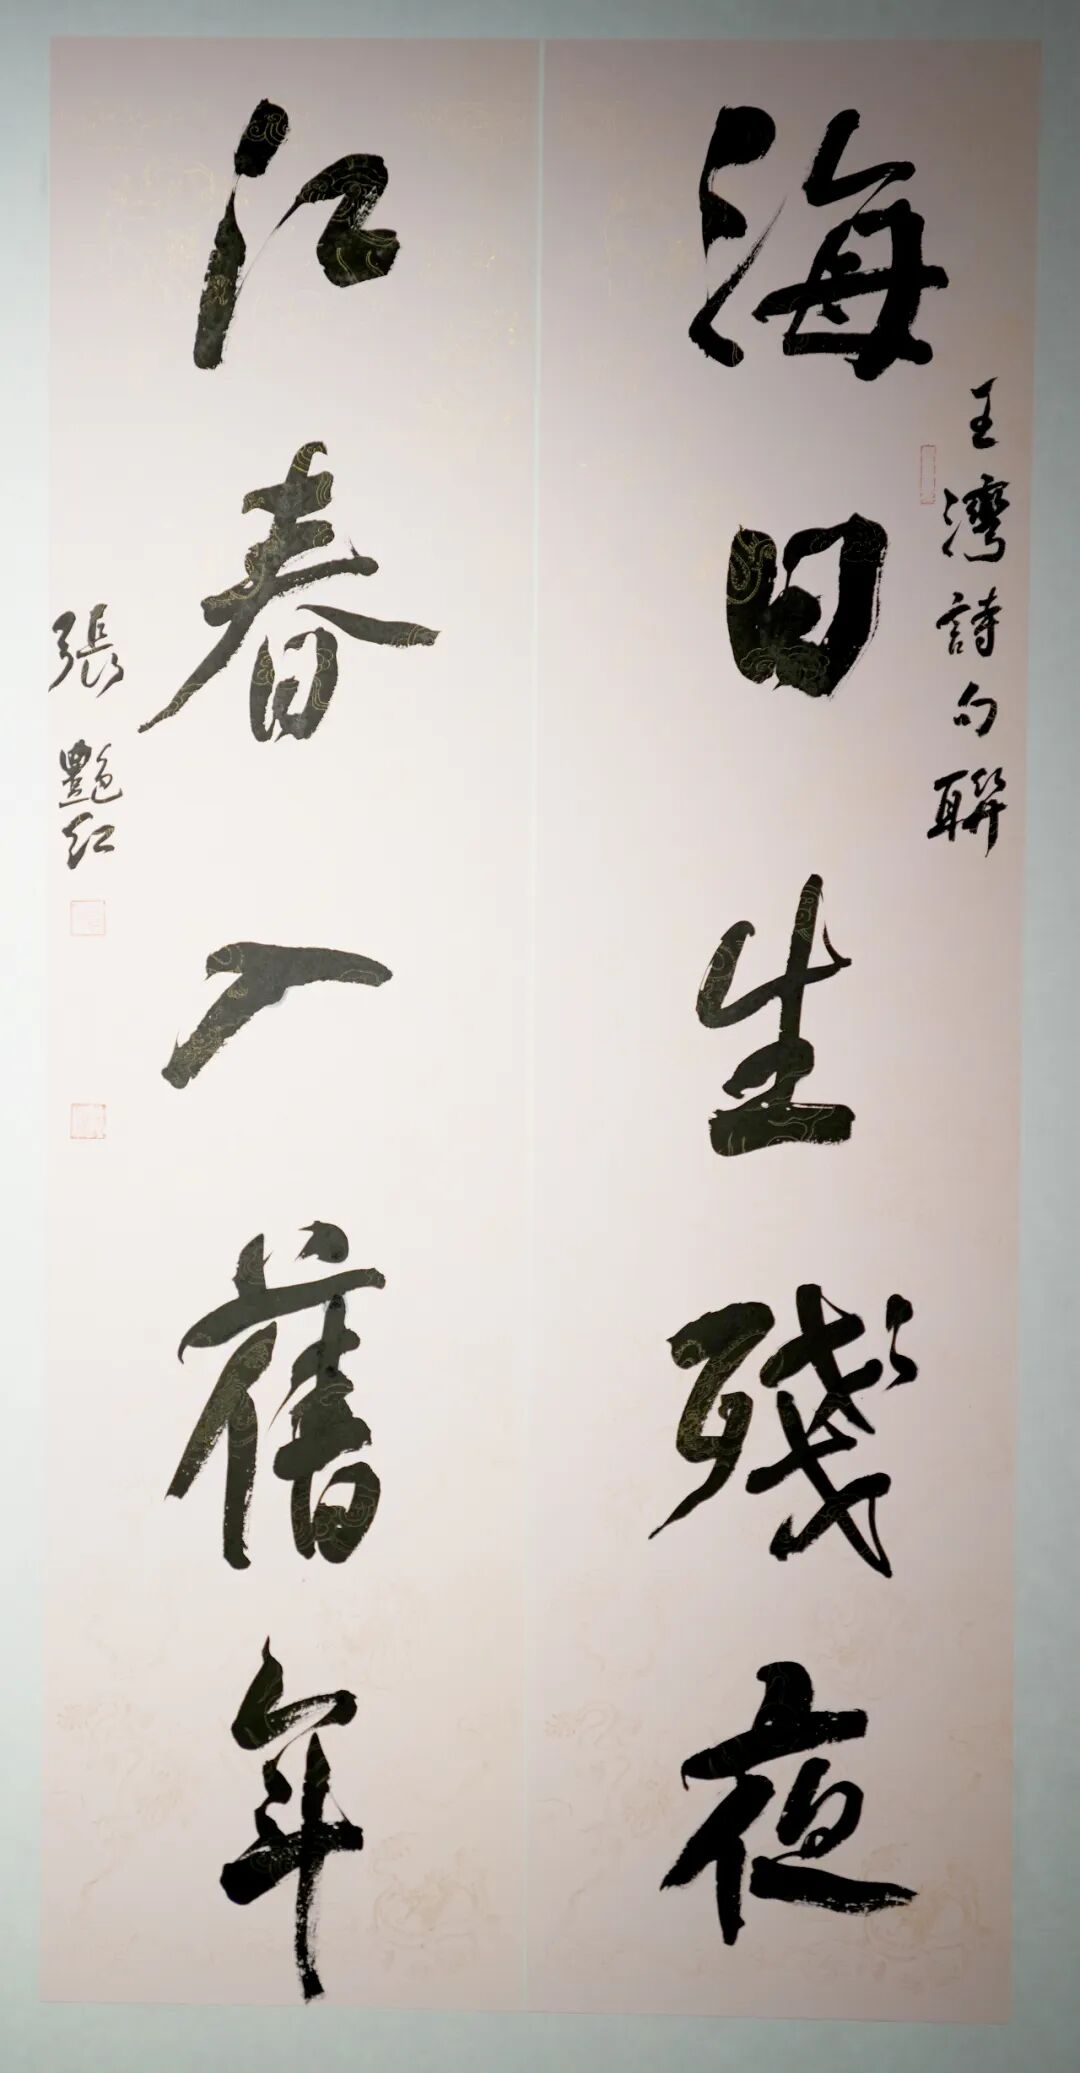 王灣詩句聯
海日生殘夜
江春入舊年
張艷紅